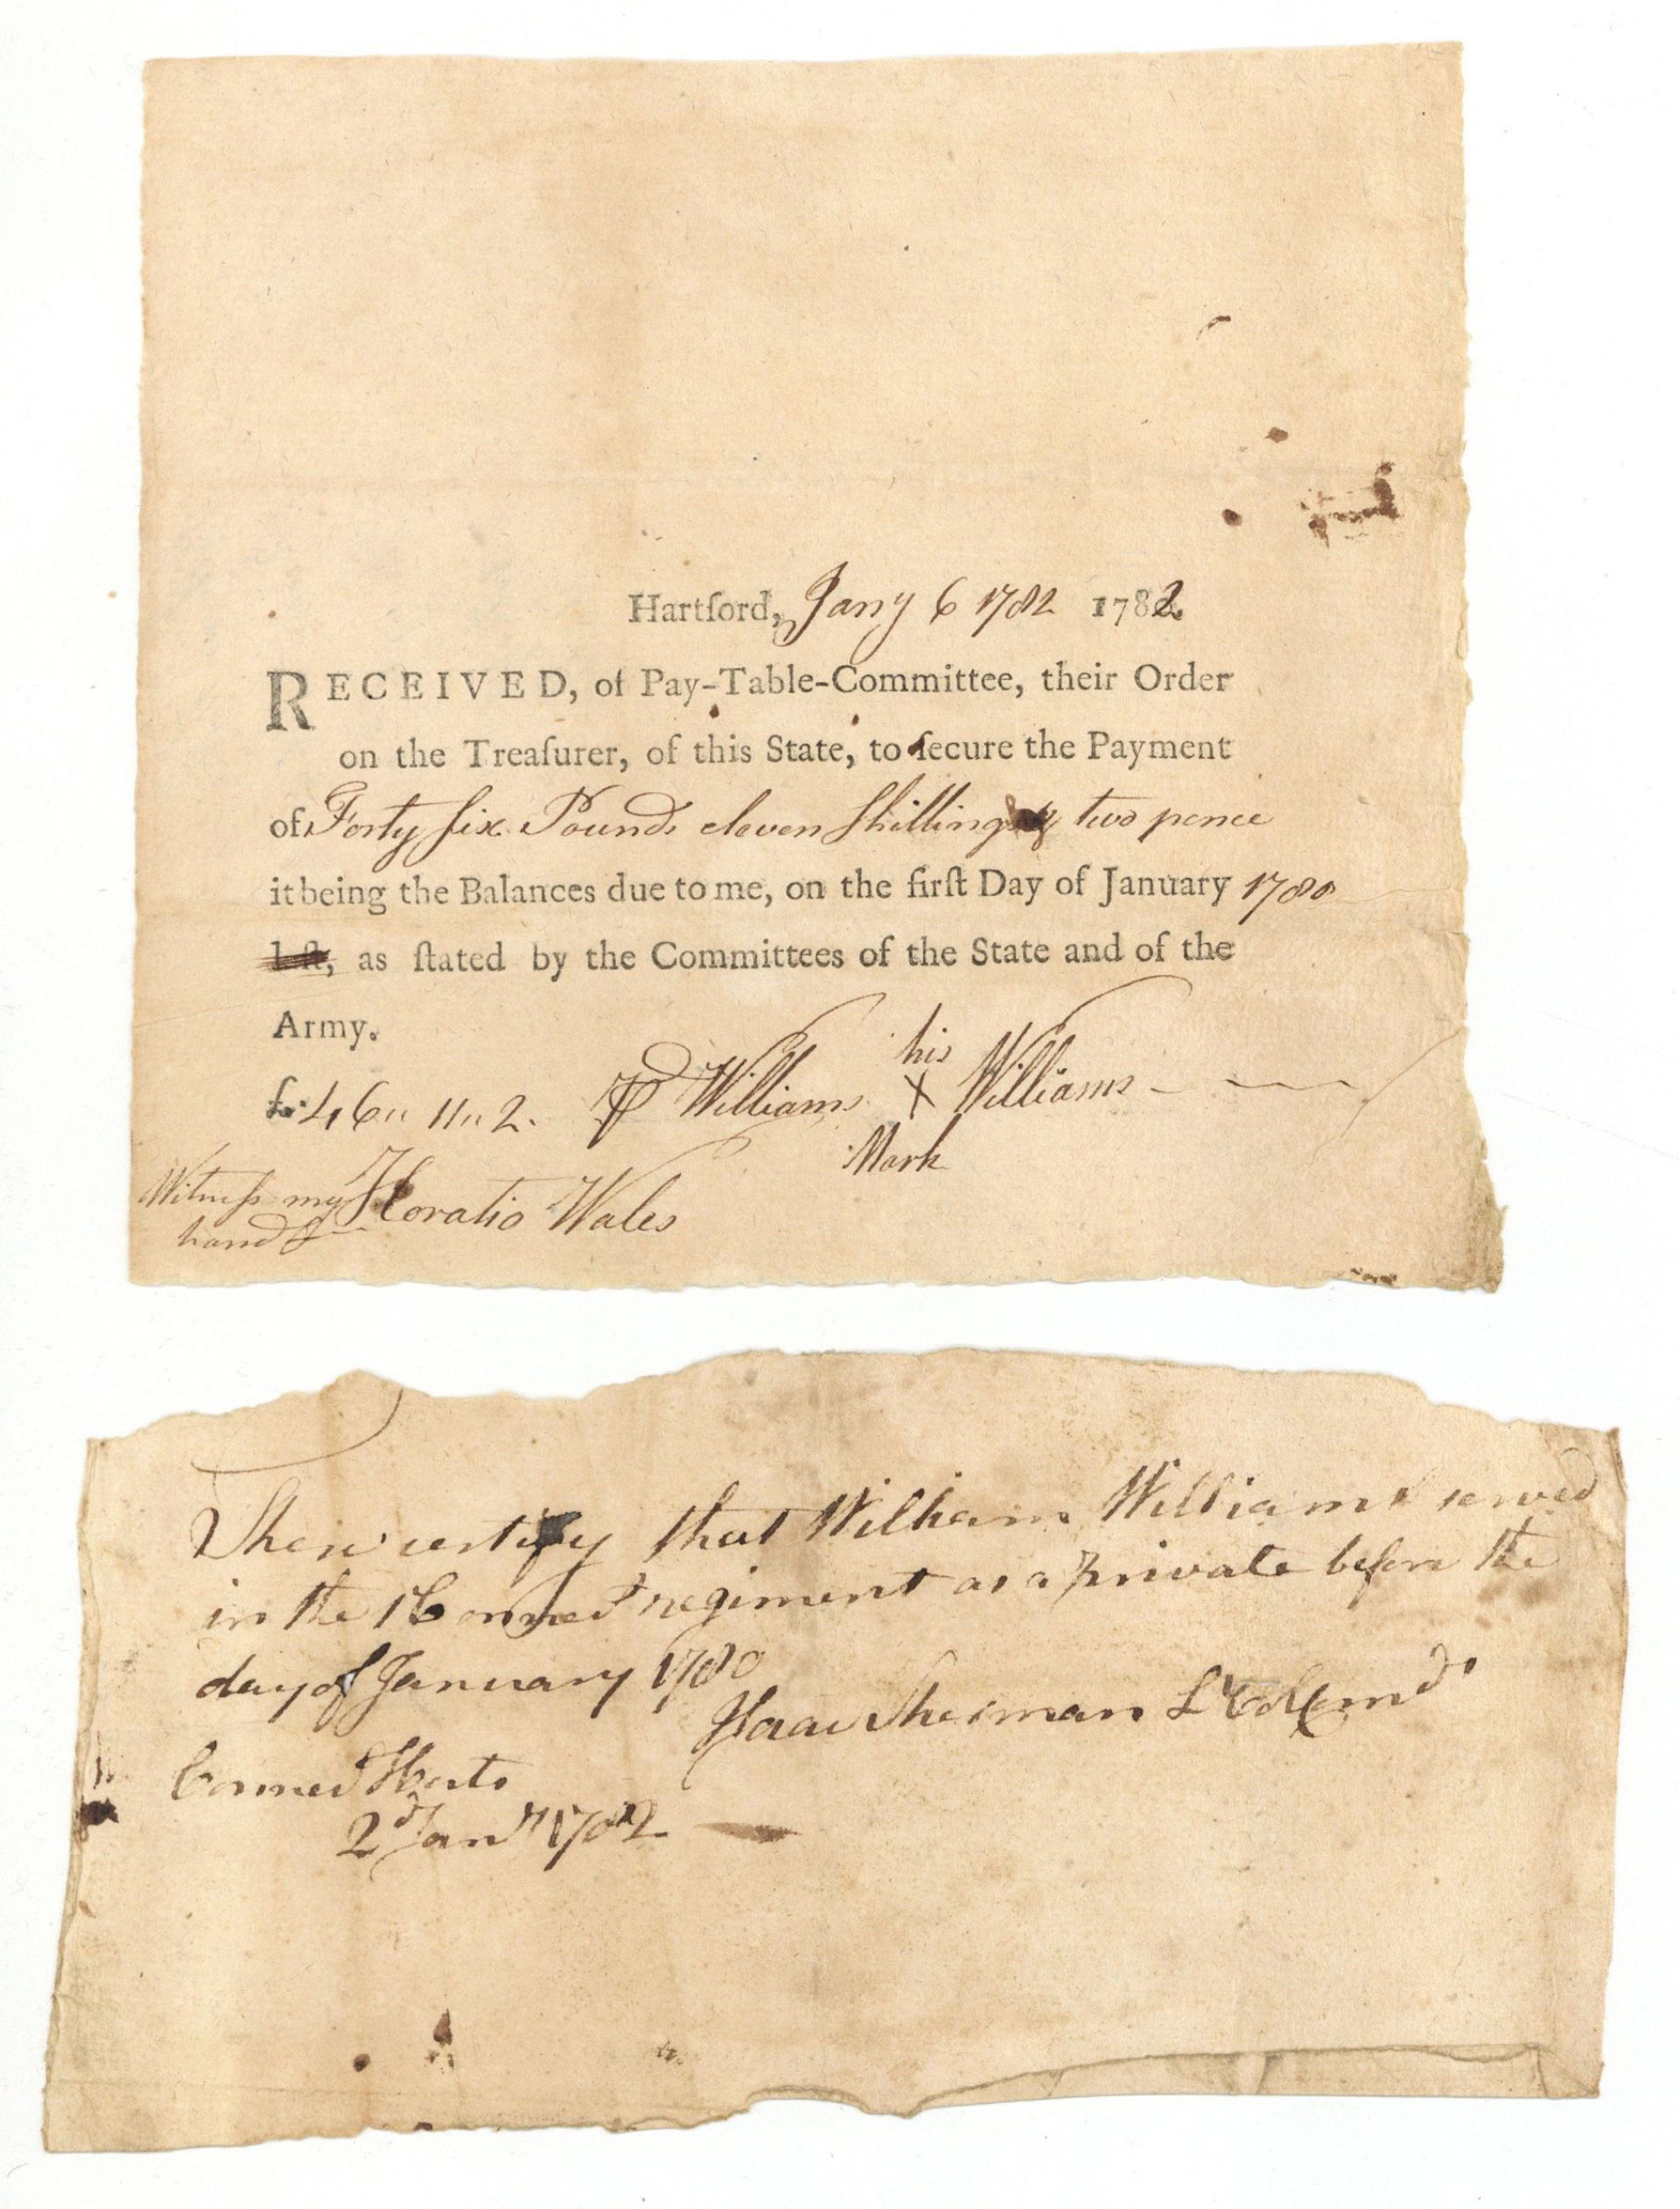 Hartford, Jany 6 1782 1782
RECEIVED, of Pay-Table-Committee, their Order
on the Treaſurer, of this State, to ſecure the Payment
of Forty ſix Pounds eleven Shillings & two pence
it being the Balances due to me, on the firſt Day of January 1780
laſt, as ſtated by the Committees of the State and of the
Army.
his
£. 46" 11" 2. P Williams X Williams
Mark
Witneſs my Horatio Wales
hand
certify that William Williams served
in the 1 Connect regiment as a private before the
day of January 1780
Isaac Sherman Lt Col Comd
Connect Huts
2d Jany 1782